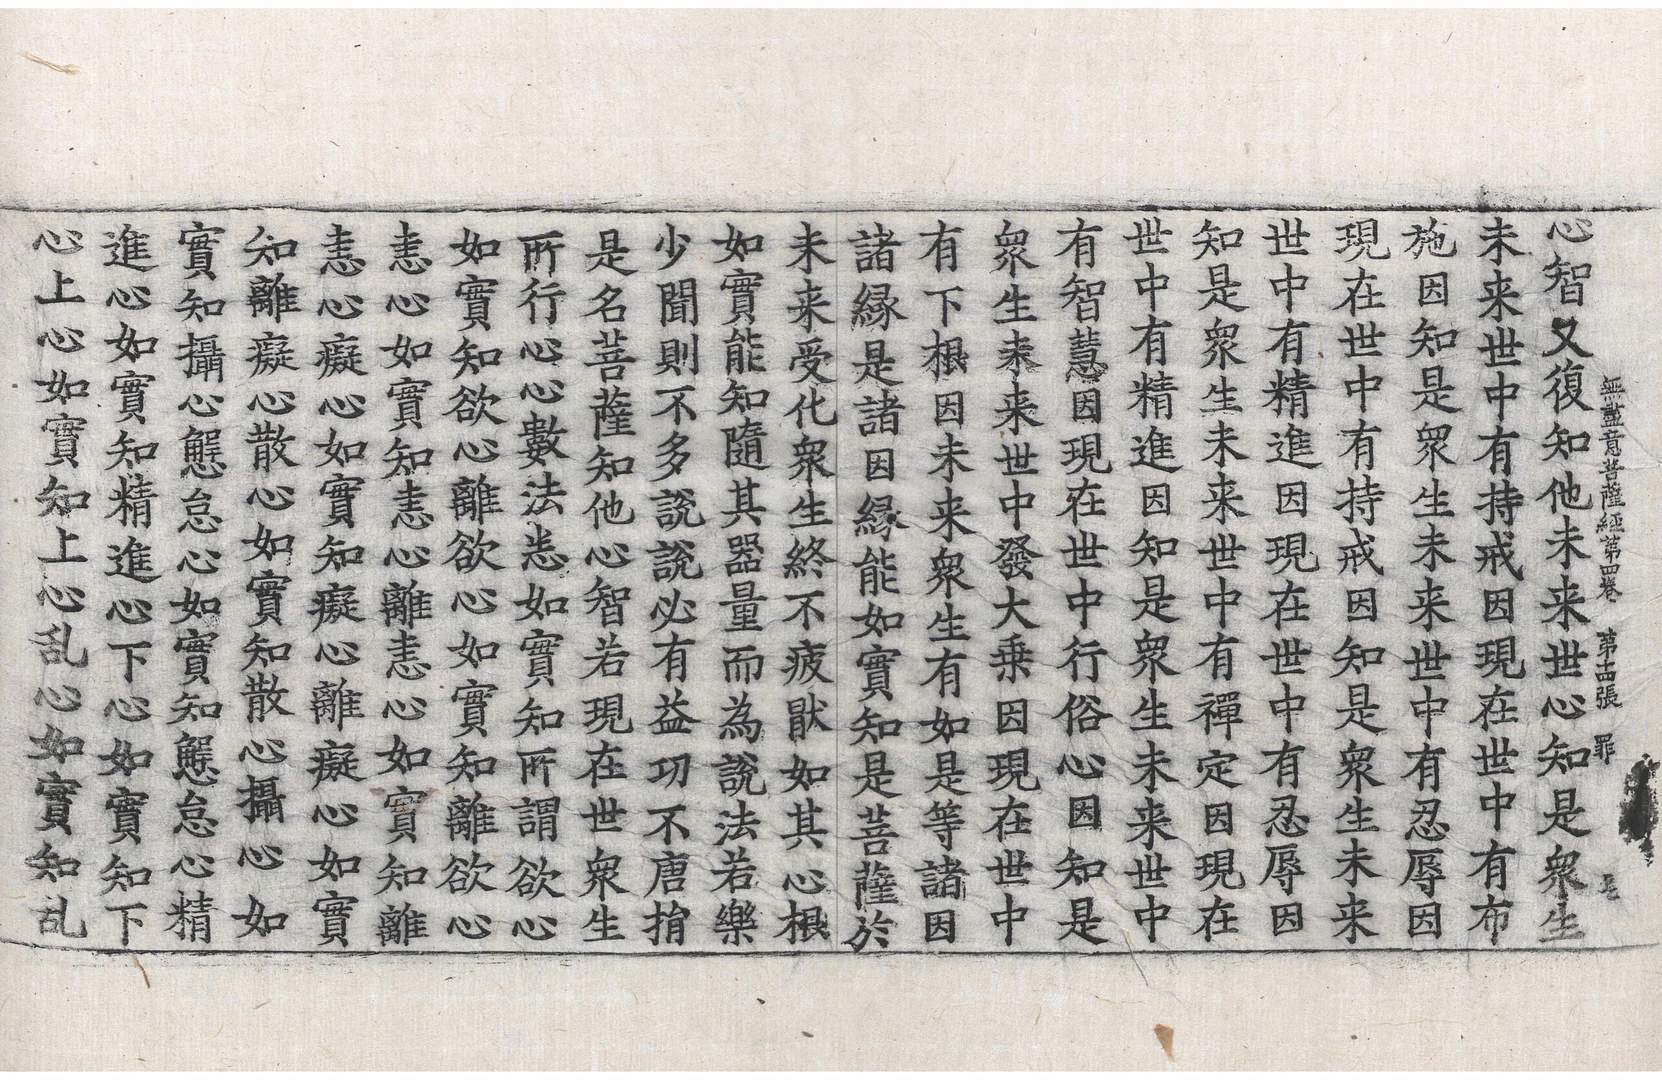 無盡意菩薩經第四卷 第十四張 罪
心智又復知他未来世心知是衆生
未来世中有持戒因現在世中有布
施因知是衆生未来世中有忍辱因
現在世中有持戒因知是衆生未来
世中有精進因現在世中有忍辱因
知是衆生未来世中有禪定因現在
世中有精進因知是衆生未来世中
有智慧因現在世中行俗心因知是
衆生未来世中發大乗因現在世中
有下根因未来衆生有如是等諸因
諸縁是諸因縁能如實知是菩薩於
未来受化衆生終不疲猒如其心根
如實能知隨其器量而為說法若樂
少聞則不多說說必有益功不唐捐
是名菩薩知他心智若現在世衆生
所行心心數法悉如實知所謂欲心
如實知欲心離欲心如實知離欲心
恚心如實知恚心離恚心如實知離
恚心癡心如實知癡心離癡心如實
知離癡心散心如實知散心攝心如
實知攝心懈怠心如實知懈怠心精
進心如實知精進心下心如實知下
心上心如實知上心乱心如實知乱